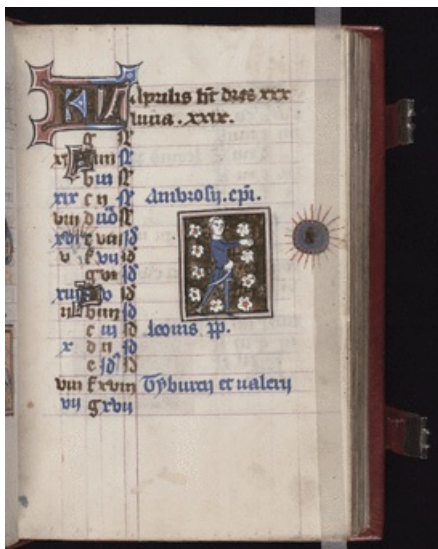 KL Aprilis ht dies xxx
luna . xxix.
g
xi A iiii
b iii
xix c ii Ambrosij. epi.
viii d
xvi e viii id
v f vii id
g vi id
xiii A v id
ii b iiii id
c iii id leonis pp.
x d ii id
e id
f xviii Tyburcij et ualerij
vii g xvii